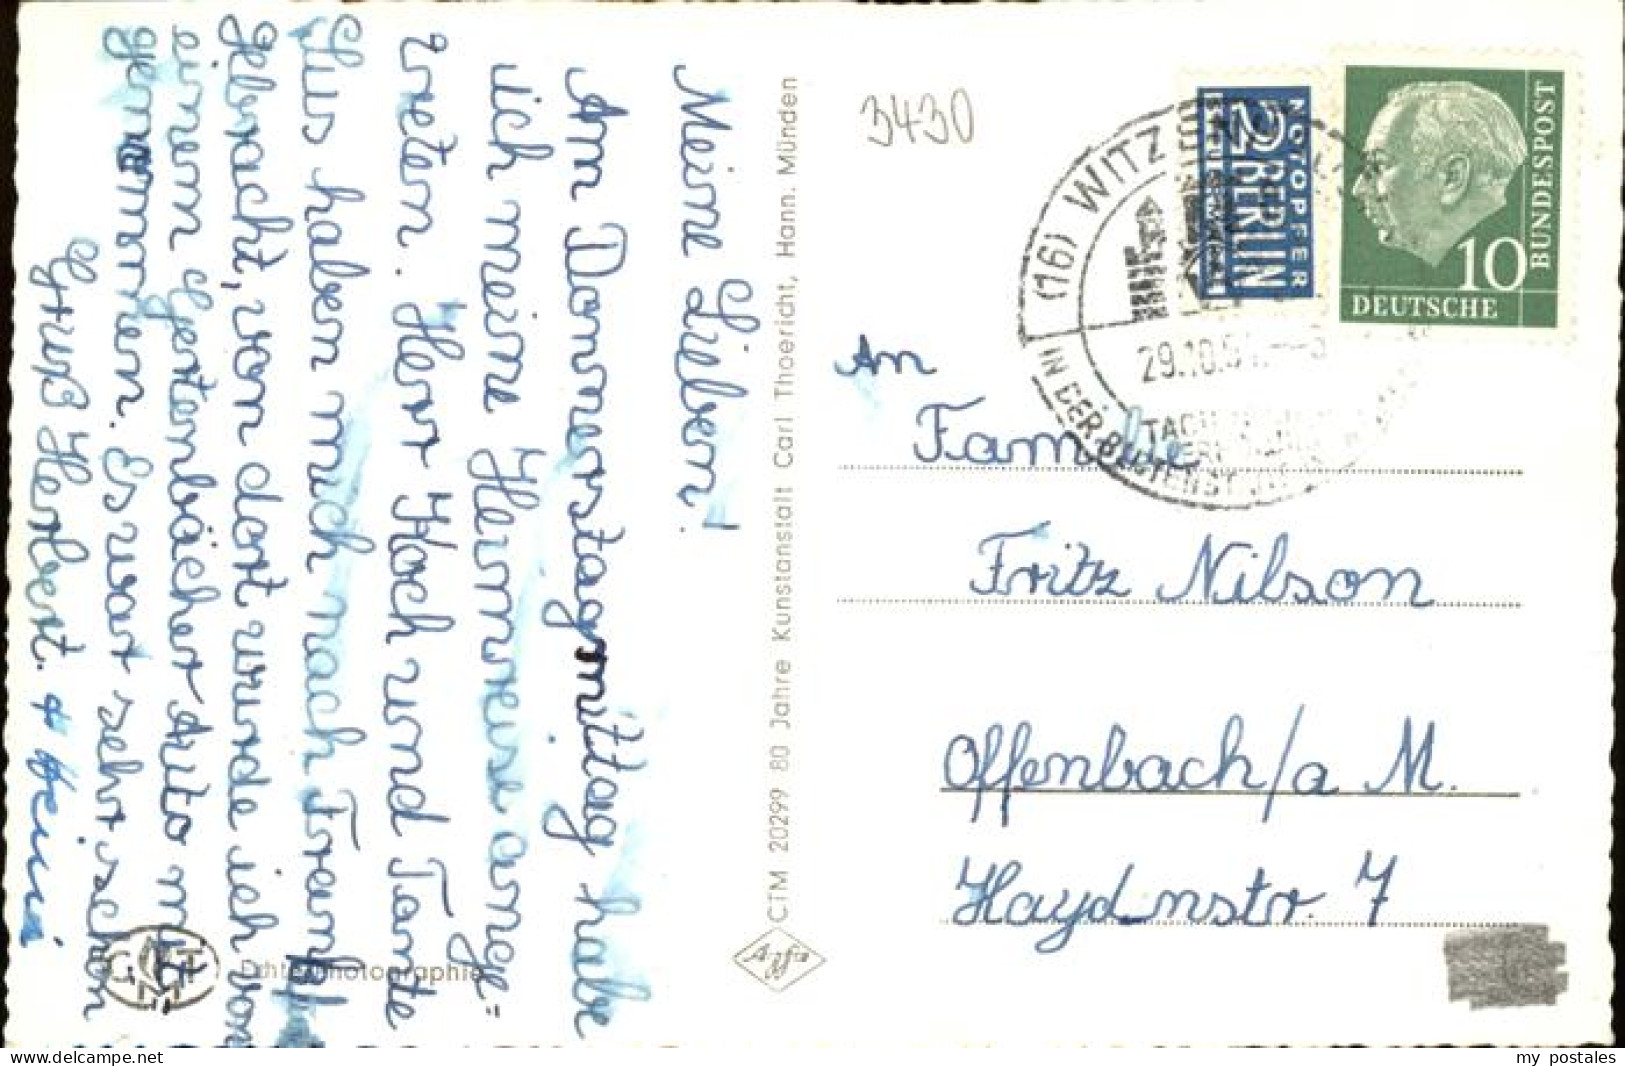 Meine Lieben!
Am Donnerstagmittag habe
ich meine Heimreise ange=
treten. Herr Koch und Tante
haben mich nach
gebracht, von dort wurde ich von
einem Gertenbächer Auto mit
genommen. Es war sehr schön
Gruß Herbert.
CTM 20299 80 Jahre Kunstanstalt Carl Thoericht, Hann. Münden
Agfa
Echte Photographie
3430
NOTOPFER
2 BERLIN
STEUERMARKE
10
DEUTSCHE
BUNDESPOST
(16) WITZ
29.10.5
IN DER
An
Familie
Fritz Nilson
Offenbach/a M.
Haydnstr. 7
www.delcampe.net
my postales